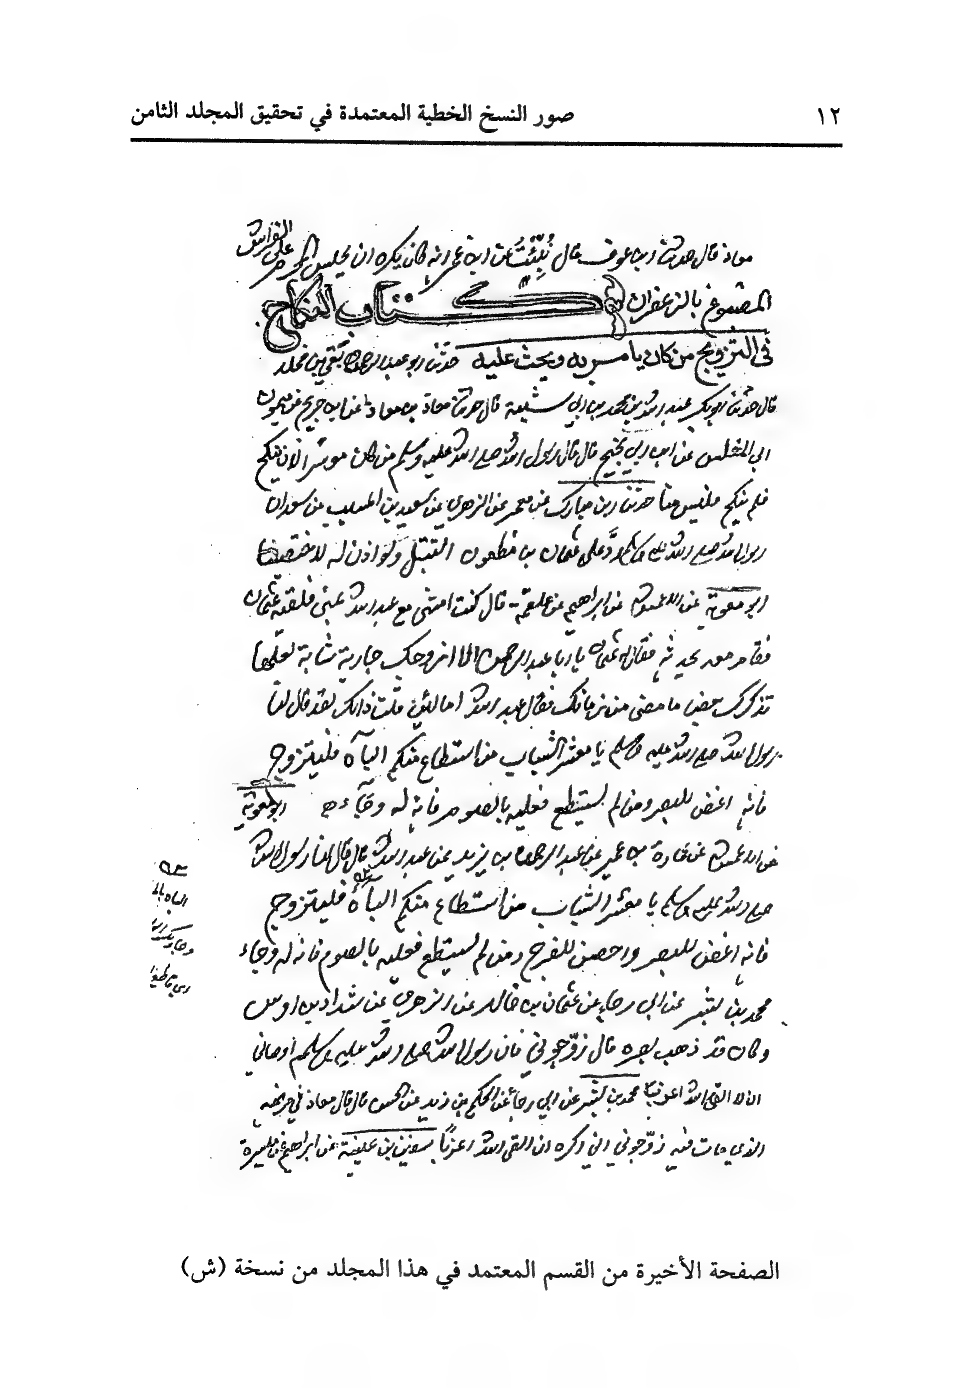 ١٢ صور النسخ الخطية المعتمدة في تحقيق المجلد الثامن
معاذ قال حدثنا ابن عون قال نُبِّئتُ عن ابن عمر انه كان يكره ان يجلس المحرم على الفراش
المصبوغ بالزعفران كتاب النكاح
في التزويج من كان يامر به ويحث عليه حدثنا ابو عبد الرحمن بقي بن مخلد
قال حدثنا ابو بكر عبد الله بن محمد بن ابي شيبة قال حدثنا معاذ بن معاذ عن ابن جريج عن ميمون
ابي المغلس عن ابي نجيح قال قال رسول الله صلى الله عليه وسلم من كان موسرا لان ينكح
فلم ينكح فليس منا حدثنا ابن مبارك عن معمر عن الزهري عن سعيد بن المسيب عن سعد ان
رسول الله صلى الله عليه وسلم ردَّ على عثمان بن مظعون التبتل ولو اذن له لاختصينا
ابو معوية عن الاعمش عن ابراهيم عن علقمة قال كنت امشي مع عبد الله بمنى فلقيه عثمان
فقام معه يحدثه فقال له عثمان يا ابا عبد الرحمن الا ازوجك جارية شابة لعلها
تذكرك بعض ما مضى من زمانك فقال عبد الله اما لئن قلت ذاك لقد قال لنا
رسول الله صلى الله عليه وسلم يا معشر الشباب من استطاع منكم الباه فليتزوج
فانه اغض للبصر ومن لم يستطع فعليه بالصوم فانه له وجاء ابو معوية
عن الاعمش عن عمارة بن عمير عن عبد الرحمن بن يزيد عن عبد الله قال قال لنا رسول الله
صلى الله عليه وسلم يا معشر الشباب من استطاع منكم الباه فليتزوج
فانه اغض للبصر واحصن للفرج ومن لم يستطع فعليه بالصوم فانه له وجاء
محمد بن بشر عن ابي رجاء عن عثمان بن خالد عن شداد بن اوس
وكان قد ذهب بصره قال زوّجوني فان رسول الله صلى الله عليه وسلم اوصاني
ان لا القى الله اعزبا محمد بن بشر عن ابي رجا عن الحكم بن زيد عن الحسن قال قال معاذ في مرضه
الذي مات فيه زوّجوني اني اكره ان القى الله اعزبًا سفين بن عيينة عن ابراهيم بن ميسرة
الصفحة الأخيرة من القسم المعتمد في هذا المجلد من نسخة (ش)